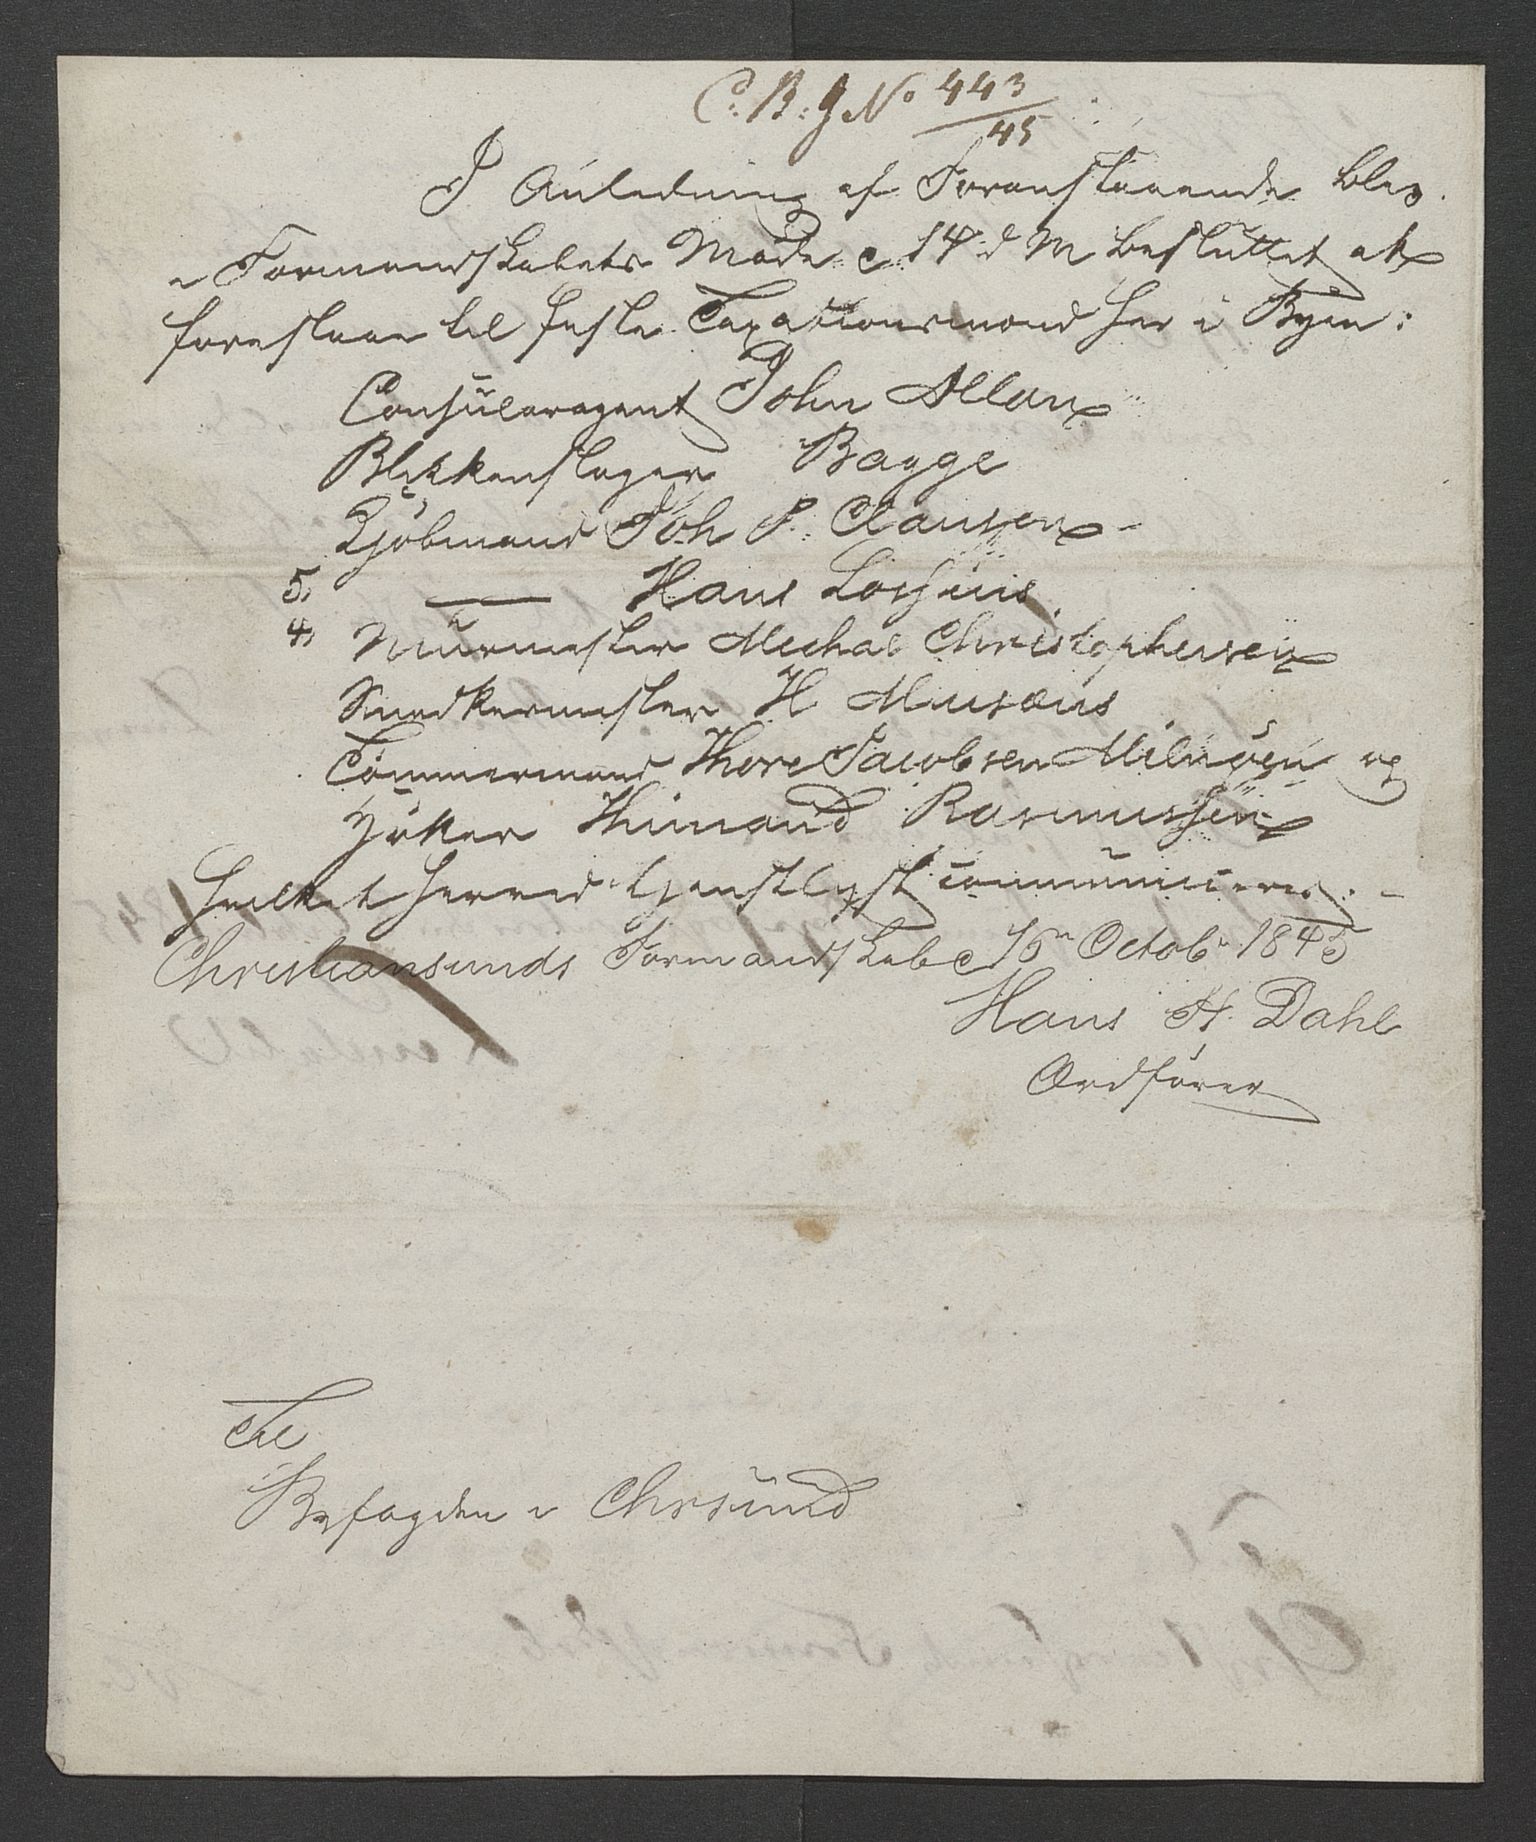 C: B: g No 443/45
I Anledning af Foranstaaende blev
i Formandskabets Møde d 14 d M besluttet at
foreslaae til faste Taxationsmænd her i Byen:
Consularagent John Allan
Blikkenslager Bagge
Kjøbmand Joh P. Clausen
5, — Hans Lossius
4, Muurmester Mechal Christophersen
Snedkermester H Musæus
Tømmermand Thore Jacobsen Milnøen og
Høker Thimand Rasmussen
hvilket herved tjenstligst communiceres: -
Christiansunds Formandskab d 16n Octobr 1845
Hans H. Dahl
Ordfører
Til
Byfogden i Chrsund